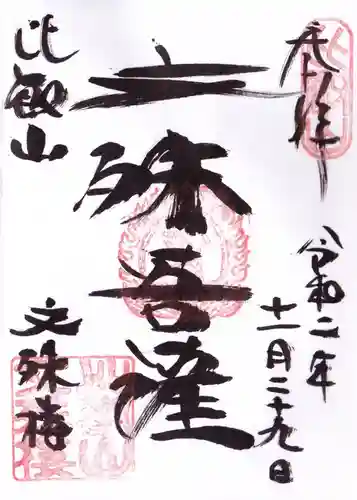 奉拝
令和二年
十一月二十九日
文殊菩薩
比叡山
文殊楼